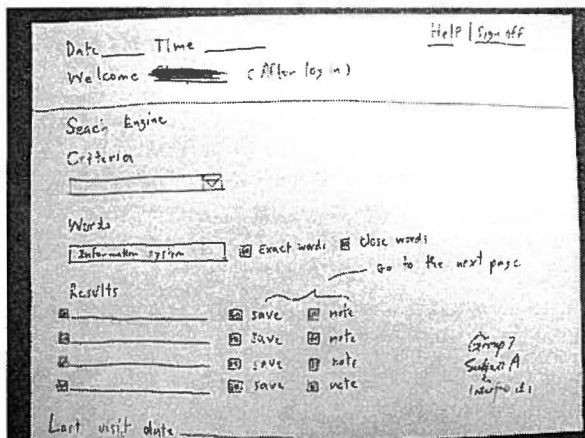 Help | Sign off
Date____ Time ______
Welcome (After log in)
Seach Engine
Criteria
Words
Information system Exact words Close words
Go to the next page
Results
save note
save note
save note
save note
Group 7
A
Last visit date